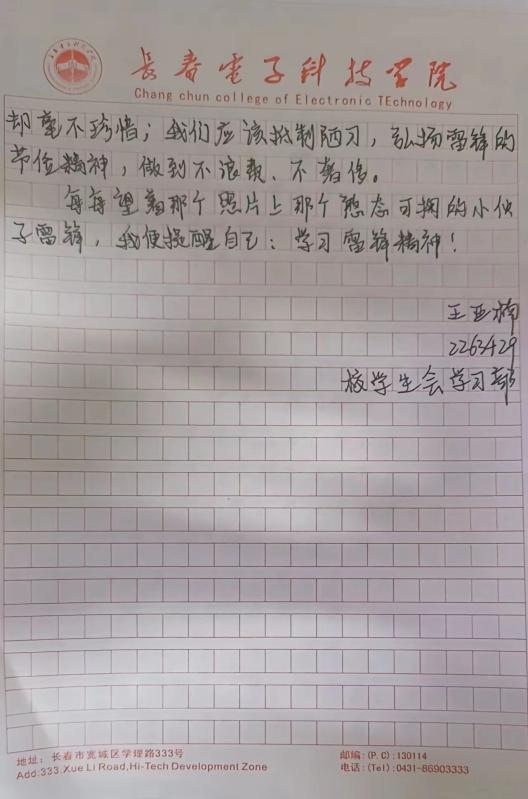 长春电子科技学院
Chang chun college of Electronic TEchnology
却毫不珍惜；我们应该抵制陋习，弘扬雷锋的
节俭精神，做到不浪费、不奢侈。
每每望着那个照片上那个憨态可掬的小伙
子雷锋，我便提醒自己：学习雷锋精神！
王亚楠
2263429
校学生会学习部
地址：长春市宽城区学理路333号
Add:333.Xue Li Road,Hi-Tech Development Zone
邮编：(P.C):130114
电话：(Tel):0431-86903333